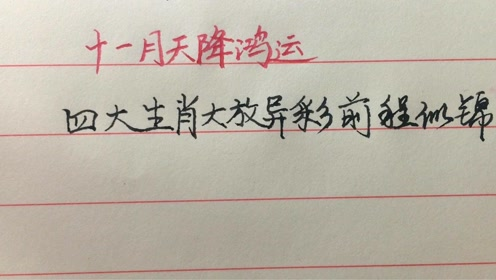 十一月天降鸿运
四大生肖大放异彩前程似锦